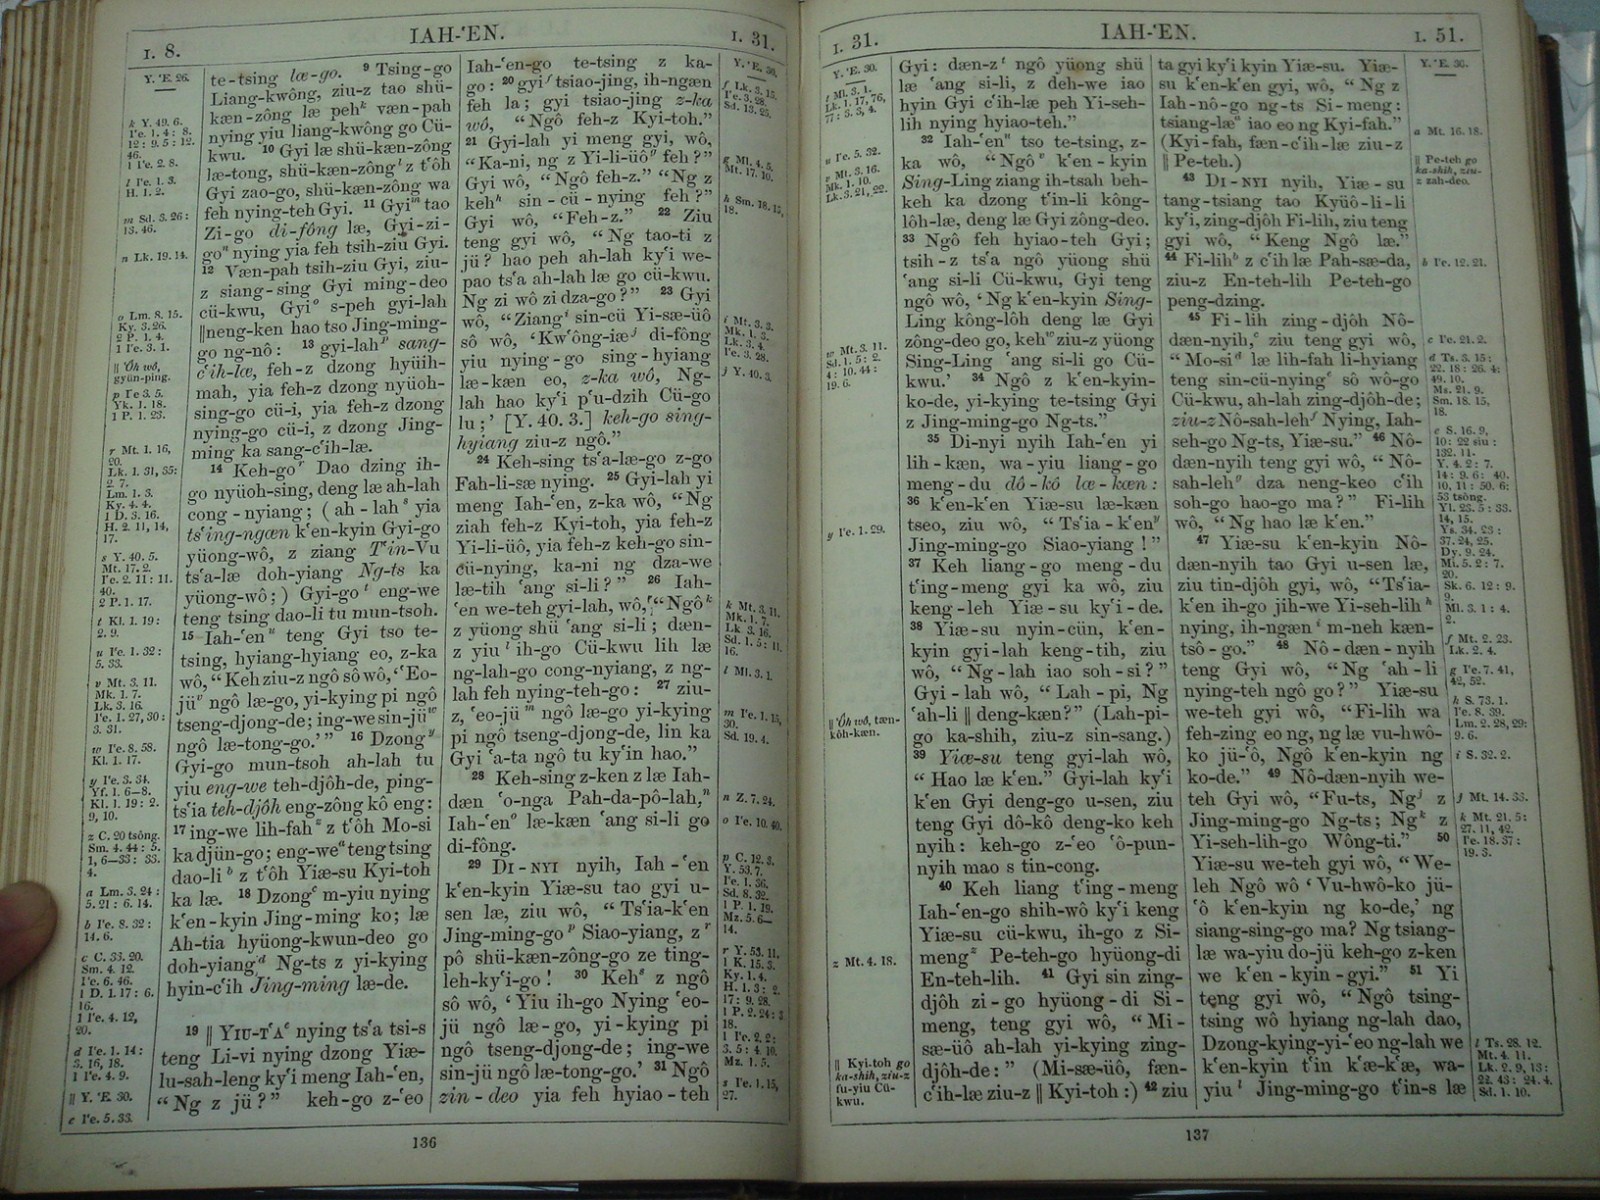 I. 8.
IAH-'EN.
I. 31.
Y. 'E. 26.
te-tsing læ-go. 9 Tsing-go
Liang-kwông, ziu-z tao shü-
kæn-zông læ pehᵏ væn-pah
nying yiu liang-kwông go Cü-
kwu. 10 Gyi læ shü-kæn-zông
læ-tong, shü-kæn-zôngˡ z t'ôh
Gyi zao-go, shü-kæn-zông wa
feh nying-teh Gyi. 11 Gyiᵐ tao
Zi-go di-fông læ, Gyi-zi-
goⁿ nying yia feh tsih-ziu Gyi.
12 Væn-pah tsih-ziu Gyi, ziu-
z siang-sing Gyi ming-deo
cü-kwu, Gyiᵒ s-peh gyi-lah
‖neng-ken hao tso Jing-ming-
go ng-nô: 13 gyi-lahᵖ sang-
c'ih-læ, feh-z dzong hyüih-
mah, yia feh-z dzong nyüoh-
sing-go cü-i, yia feh-z dzong
nying-go cü-i, z dzong Jing-
ming ka sang-c'ih-læ.
14 Keh-goʳ Dao dzing ih-
go nyüoh-sing, deng læ ah-lah
cong-nyiang; (ah-lahˢ yia
ts'ing-ngæn k'en-kyin Gyi-go
yüong-wô, z ziang T'in-Vu
ts'a-læ doh-yiang Ng-ts ka
yüong-wô;) Gyi-goᵗ eng-we
teng tsing dao-li tu mun-tsoh.
15 Iah-'enᵘ teng Gyi tso te-
tsing, hyiang-hyiang eo, z-ka
wô, “Keh ziu-z ngô sô wô, ‘'Eo-
jüᵛ ngô læ-go, yi-kying pi ngô
tseng-djong-de; ing-we sin-jüʷ
ngô læ-tong-go.’” 16 Dzongʸ
Gyi-go mun-tsoh ah-lah tu
yiu eng-we teh-djôh-de, ping-
ts'ia teh-djôh eng-zông kô eng:
17 ing-we lih-fahᶻ z t'ôh Mo-si
ka djün-go; eng-weᵃ teng tsing
dao-liᵇ z t'ôh Yiæ-su Kyi-toh
ka læ. 18 Dzongᶜ m-yiu nying
k'en-kyin Jing-ming ko; læ
Ah-tia hyüong-kwun-deo go
doh-yiangᵈ Ng-ts z yi-kying
hyin-c'ih Jing-ming læ-de.
19 ‖ Yiu-t'aᵉ nying ts'a tsi-s
teng Li-vi nying dzong Yiæ-
lu-sah-leng ky'i meng Iah-'en,
“Ng z jü?” keh-go z-'eo
k Y. 49. 6.
l I'e. 1. 3.
H. 1. 2.
m Sd. 3. 26:
13. 46.
n Lk. 19. 14.
o Lm. 8. 15.
Ky. 3. 26.
2 P. 1. 4.
1 I'e. 3. 1.
‖ 'Ôh wô,
gyün-ping.
p I'e 3. 5.
Yk. 1. 18.
1 P. 1. 23.
r Mt. 1. 16,
20.
Lk. 1. 31, 35:
2. 7.
Lm. 1. 3.
Ky. 4. 4.
1 D. 3. 16.
H. 2. 11, 14,
17.
s Y. 40. 5.
Mt. 17. 2.
I'e. 2. 11: 11.
40.
2 P. 1. 17.
t Kl. 1. 19:
2. 9.
u I'e. 1. 32:
5. 33.
v Mt. 3. 11.
Mk. 1. 7.
Lk. 3. 16.
I'e. 1. 27, 30:
3. 31.
w I'e. 8. 58.
Kl. 1. 17.
y I'e. 3. 34.
Yf. 1. 6–8.
Kl. 1. 19: 2.
9, 10.
z C. 20 tsông.
Sm. 4. 44: 5.
1, 6–33: 33.
4.
a Lm. 3. 24:
5. 21: 6. 14.
b I'e. 8. 32:
14. 6.
c C. 33. 20.
Sm. 4. 12.
I'e. 6. 46.
1 D. 1. 17: 6.
16.
1 I'e. 4. 12,
20.
d I'e. 1. 14:
3. 16, 18.
1 I'e. 4. 9.
‖ Y. 'E. 30.
e I'e. 5. 33.
Iah-'en-go te-tsing z ka-
go: 20 gyiᶠ tsiao-jing, ih-ngæn
feh la; gyi tsiao-jing z-ka
wô, “Ngô feh-z Kyi-toh.”
21 Gyi-lah yi meng gyi, wô,
“Ka-ni, ng z Yi-li-üôᵍ feh?”
Gyi wô, “Ngô feh-z.” “Ng z
kehʰ sin-cü-nying feh?”
Gyi wô, “Feh-z.” 22 Ziu
teng gyi wô, “Ng tao-ti z
jü? hao peh ah-lah ky'i we-
pao ts'a ah-lah læ go cü-kwu.
Ng zi wô zi dza-go?” 23 Gyi
wô, “Ziangⁱ sin-cü Yi-sæ-üô
sô wô, ‘Kw'ông-iæʲ di-fông
yiu nying-go sing-hyiang
læ-kæn eo, z-ka wô, Ng-
lah hao ky'i p'u-dzih Cü-go
lu;’ [Y. 40. 3.] keh-go sing-
hyiang ziu-z ngô.”
24 Keh-sing ts'a-læ-go z-go
Fah-li-sæ nying. 25 Gyi-lah yi
meng Iah-'en, z-ka wô, “Ng
ziah feh-z Kyi-toh, yia feh-z
Yi-li-üô, yia feh-z keh-go sin-
cü-nying, ka-ni ng dza-we
læ-tih 'ang si-li?” 26 Iah-
'en we-teh gyi-lah, wô, “Ngôᵏ
z yüong shü 'ang si-li; dæn-
z yiuˡ ih-go Cü-kwu lih læ
ng-lah-go cong-nyiang, z ng-
lah feh nying-teh-go: 27 ziu-
z, 'eo-jüᵐ ngô læ-go yi-kying
pi ngô tseng-djong-de, lin ka
Gyi 'a-ta ngô tu ky'in hao.”
28 Keh-sing z-ken z læ Iah-
dæn 'o-nga Pah-da-pô-lah,ⁿ
Iah-'enᵒ læ-kæn 'ang si-li go
di-fông.
29 Di-nyi nyih, Iah-'en
k'en-kyin Yiæ-su tao gyi u-
sen læ, ziu wô, “Ts'ia-k'en
Jing-ming-goᵖ Siao-yiang, zʳ
pô shü-kæn-zông-go ze ting-
leh-ky'i-go! 30 Kehˢ z ngô
sô wô, ‘Yiu ih-go Nying 'eo-
jü ngô læ-go, yi-kying pi
ngô tseng-djong-de; ing-we
sin-jü ngô læ-tong-go.’ 31 Ngô
zin-deo yia feh hyiao-teh
Y. 'E. 30.
g Ml. 4. 5.
Mt. 17. 10.
h Sm. 18. 15,
18.
i Mt. 3. 3.
Mk. 1. 3.
Lk. 3. 4.
I'e. 3. 28.
j Y. 40. 3.
k Mt. 3. 11.
Mk. 1. 7.
Lk 3. 16.
Sd. 1. 5: 11.
16.
l Ml. 3. 1.
m I'e. 1. 15,
30.
Sd. 19. 4.
n Z. 7. 24.
o I'e. 10. 40.
p C. 12. 3.
Y. 53. 7.
I'e. 1. 36.
Sd. 8. 32.
1 P. 1. 19.
Mz. 5. 6–
14.
r Y. 53. 11.
1 K. 15. 3.
Ky. 1. 4.
H. 1. 3: 2.
17: 9. 28.
1 P. 2. 24: 3
18.
1 I'e. 2. 2:
3. 5: 4. 10.
Mz. 1. 5.
s I'e. 1. 15,
27.
136
I. 31.
IAH-'EN.
I. 51.
Y. 'E. 30.
t Ml. 3. 1.
Lk. 1. 17, 76,
77: 3. 3, 4.
u I'e. 5. 32.
v Mt. 3. 16.
Mk. 1. 10.
Lk. 3. 21, 22.
w Mt. 3. 11.
Sd. 1. 5: 2.
4: 10. 44:
19. 6.
y I'e. 1. 29.
‖ 'Ôh wô, tæn-
kôh-kæn.
z Mt. 4. 18.
‖ Kyi-toh go
ka-shih, ziu-z
fu-yiu Cü-
kwu.
Gyi: dæn-zᵗ ngô yüong shü
læ 'ang si-li, z deh-we iao
hyin Gyi c'ih-læ peh Yi-seh-
lih nying hyiao-teh.”
32 Iah-'enᵘ tso te-tsing, z-
ka wô, “Ngôᵛ k'en-kyin
Sing-Ling ziang ih-tsah beh-
keh ka dzong t'in-li kông-
lôh-læ, deng læ Gyi zông-deo.
33 Ngô feh hyiao-teh Gyi;
tsih-z ts'a ngô yüong shü
'ang si-li Cü-kwu, Gyi teng
ngô wô, ‘Ng k'en-kyin Sing-
Ling kông-lôh deng læ Gyi
zông-deo go, kehʷ ziu-z yüong
Sing-Ling 'ang si-li go Cü-
kwu.’ 34 Ngô z k'en-kyin-
ko-de, yi-kying te-tsing Gyi
z Jing-ming-go Ng-ts.”
35 Di-nyi nyih Iah-'en yi
lih-kæn, wa-yiu liang-go
meng-du dô-kô læ-kæn:
36 k'en-k'en Yiæ-su læ-kæn
tseo, ziu wô, “Ts'ia-k'enʸ
Jing-ming-go Siao-yiang!”
37 Keh liang-go meng-du
t'ing-meng gyi ka wô, ziu
keng-leh Yiæ-su ky'i-de.
38 Yiæ-su nyin-cün, k'en-
kyin gyi-lah keng-tih, ziu
wô, “Ng-lah iao soh-si?”
Gyi-lah wô, “Lah-pi, Ng
'ah-li ‖ deng-kæn?” (Lah-pi-
go ka-shih, ziu-z sin-sang.)
39 Yiæ-su teng gyi-lah wô,
“Hao læ k'en.” Gyi-lah ky'i
k'en Gyi deng-go u-sen, ziu
teng Gyi dô-kô deng-ko keh
nyih: keh-go z-'eo 'ô-pun-
nyih mao s tin-cong.
40 Keh liang t'ing-meng
Iah-'en-go shih-wô ky'i keng
Yiæ-su cü-kwu, ih-go z Si-
mengᶻ Pe-teh-go hyüong-di
En-teh-lih. 41 Gyi sin zing-
djôh zi-go hyüong-di Si-
meng, teng gyi wô, “Mi-
sæ-üô ah-lah yi-kying zing-
djôh-de:” (Mi-sæ-üô, fæn-
c'ih-læ ziu-z ‖ Kyi-toh:) 42 ziu
ta gyi ky'i kyin Yiæ-su. Yiæ-
su k'en-k'en gyi, wô, “Ng z
Iah-nô-go ng-ts Si-meng:
tsiang-læᵃ iao eo ng Kyi-fah.”
(Kyi-fah, fæn-c'ih-læ ziu-z
‖ Pe-teh.)
43 Di-nyi nyih, Yiæ-su
tang-tsiang tao Kyüô-li-li
ky'i, zing-djôh Fi-lih, ziu teng
gyi wô, “Keng Ngô læ.”
44 Fi-lihᵇ z c'ih læ Pah-sæ-da,
ziu-z En-teh-lih Pe-teh-go
peng-dzing.
45 Fi-lih zing-djôh Nô-
dæn-nyih,ᶜ ziu teng gyi wô,
“Mo-siᵈ læ lih-fah li-hyiang
teng sin-cü-nyingᵉ sô wô-go
Cü-kwu, ah-lah zing-djôh-de;
ziu-z Nô-sah-lehᶠ Nying, Iah-
seh-go Ng-ts, Yiæ-su.” 46 Nô-
dæn-nyih teng gyi wô, “Nô-
sah-lehᵍ dza neng-keo c'ih
soh-go hao-go ma?” Fi-lih
wô, “Ng hao læ k'en.”
47 Yiæ-su k'en-kyin Nô-
dæn-nyih tao Gyi u-sen læ,
ziu tin-djôh gyi, wô, “Ts'ia-
k'en ih-go jih-we Yi-seh-lihʰ
nying, ih-ngænⁱ m-neh kæn-
tsô-go.” 48 Nô-dæn-nyih
teng Gyi wô, “Ng 'ah-li
nying-teh ngô go?” Yiæ-su
we-teh gyi wô, “Fi-lih wa
feh-zing eo ng, ng læ vu-hwô-
ko jü-'ô, Ngô k'en-kyin ng
ko-de.” 49 Nô-dæn-nyih we-
teh Gyi wô, “Fu-ts, Ngʲ z
Jing-ming-go Ng-ts; Ngᵏ z
Yi-seh-lih-go Wông-ti.” 50
Yiæ-su we-teh gyi wô, “We-
leh Ngô wô ‘Vu-hwô-ko jü-
'ô k'en-kyin ng ko-de,’ ng
siang-sing-go ma? Ng tsiang-
læ wa-yiu do-jü keh-go z-ken
we k'en-kyin-gyi.” 51 Yi
teng gyi wô, “Ngô tsing-
tsing wô hyiang ng-lah dao,
Dzong-kying-yi-'eo ng-lah we
k'en-kyin t'in k'æ-k'æ, wa-
yiuˡ Jing-ming-go t'in-s læ
Y. 'E. 30.
a Mt. 16. 18.
‖ Pe-teh go
ka-shih, ziu-
z zah-deo.
b I'e. 12. 21.
c I'e. 21. 2.
d Ts. 3. 15:
22. 18: 26. 4:
49. 10.
Ms. 21. 9.
Sm. 18. 15,
18.
e S. 16. 9,
10: 22 siu:
132. 11.
Y. 4. 2: 7.
14: 9. 6: 40.
10, 11: 50. 6:
53 tsông.
Yl. 23. 5: 33.
14, 15.
Ys. 34. 23:
37. 24, 25.
Dy. 9. 24.
Mi. 5. 2: 7.
20.
Sk. 6. 12: 9.
9.
Ml. 3. 1: 4.
2.
f Mt. 2. 23.
Lk. 2. 4.
g I'e. 7. 41,
42, 52.
h S. 73. 1.
I'e. 8. 39.
Lm. 2. 28, 29:
9. 6.
i S. 32. 2.
j Mt. 14. 33.
k Mt. 21. 5:
27. 11, 42.
I'e. 18. 37:
19. 3.
l Ts. 28. 12.
Mt. 4. 11.
Lk. 2. 9, 13:
22. 43: 24. 4.
Sd. 1. 10.
137